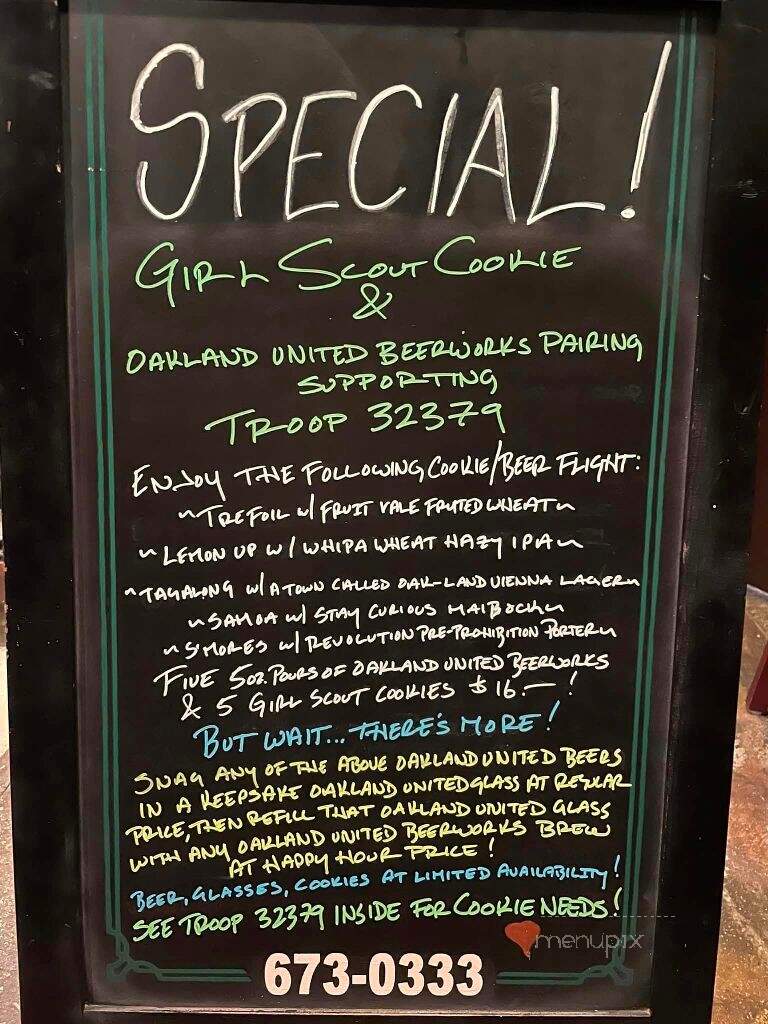 SPECIAL!
GIRL SCOUT COOKIE
&
OAKLAND UNITED BEERWORKS PAIRING
SUPPORTING
TROOP 32379
ENJOY THE FOLLOWING COOKIE/BEER FLIGHT:
~TREFOIL W/ FRUIT VALE FRUITED WHEAT~
~LEMON UP W/ WHIPA WHEAT HAZY IPA~
~TAGALONG W/ A TOWN CALLED OAK-LAND VIENNA LAGER~
~SAMOA W/ STAY CURIOUS MAIBOCK~
~S'MORES W/ REVOLUTION PRE-PROHIBITION PORTER~
FIVE 5OZ. POURS OF OAKLAND UNITED BEERWORKS
& 5 GIRL SCOUT COOKIES $16.—!
BUT WAIT... THERE'S MORE!
SNAG ANY OF THE ABOVE OAKLAND UNITED BEERS
IN A KEEPSAKE OAKLAND UNITED GLASS AT REGULAR
PRICE, THEN REFILL THAT OAKLAND UNITED GLASS
WITH ANY OAKLAND UNITED BEERWORKS BREW
AT HAPPY HOUR PRICE!
BEER, GLASSES, COOKIES AT LIMITED AVAILABILITY!
SEE TROOP 32379 INSIDE FOR COOKIE NEEDS!
menupix
673-0333